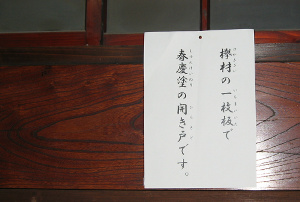 欅材の一枚板で
春慶塗の開き戸です。